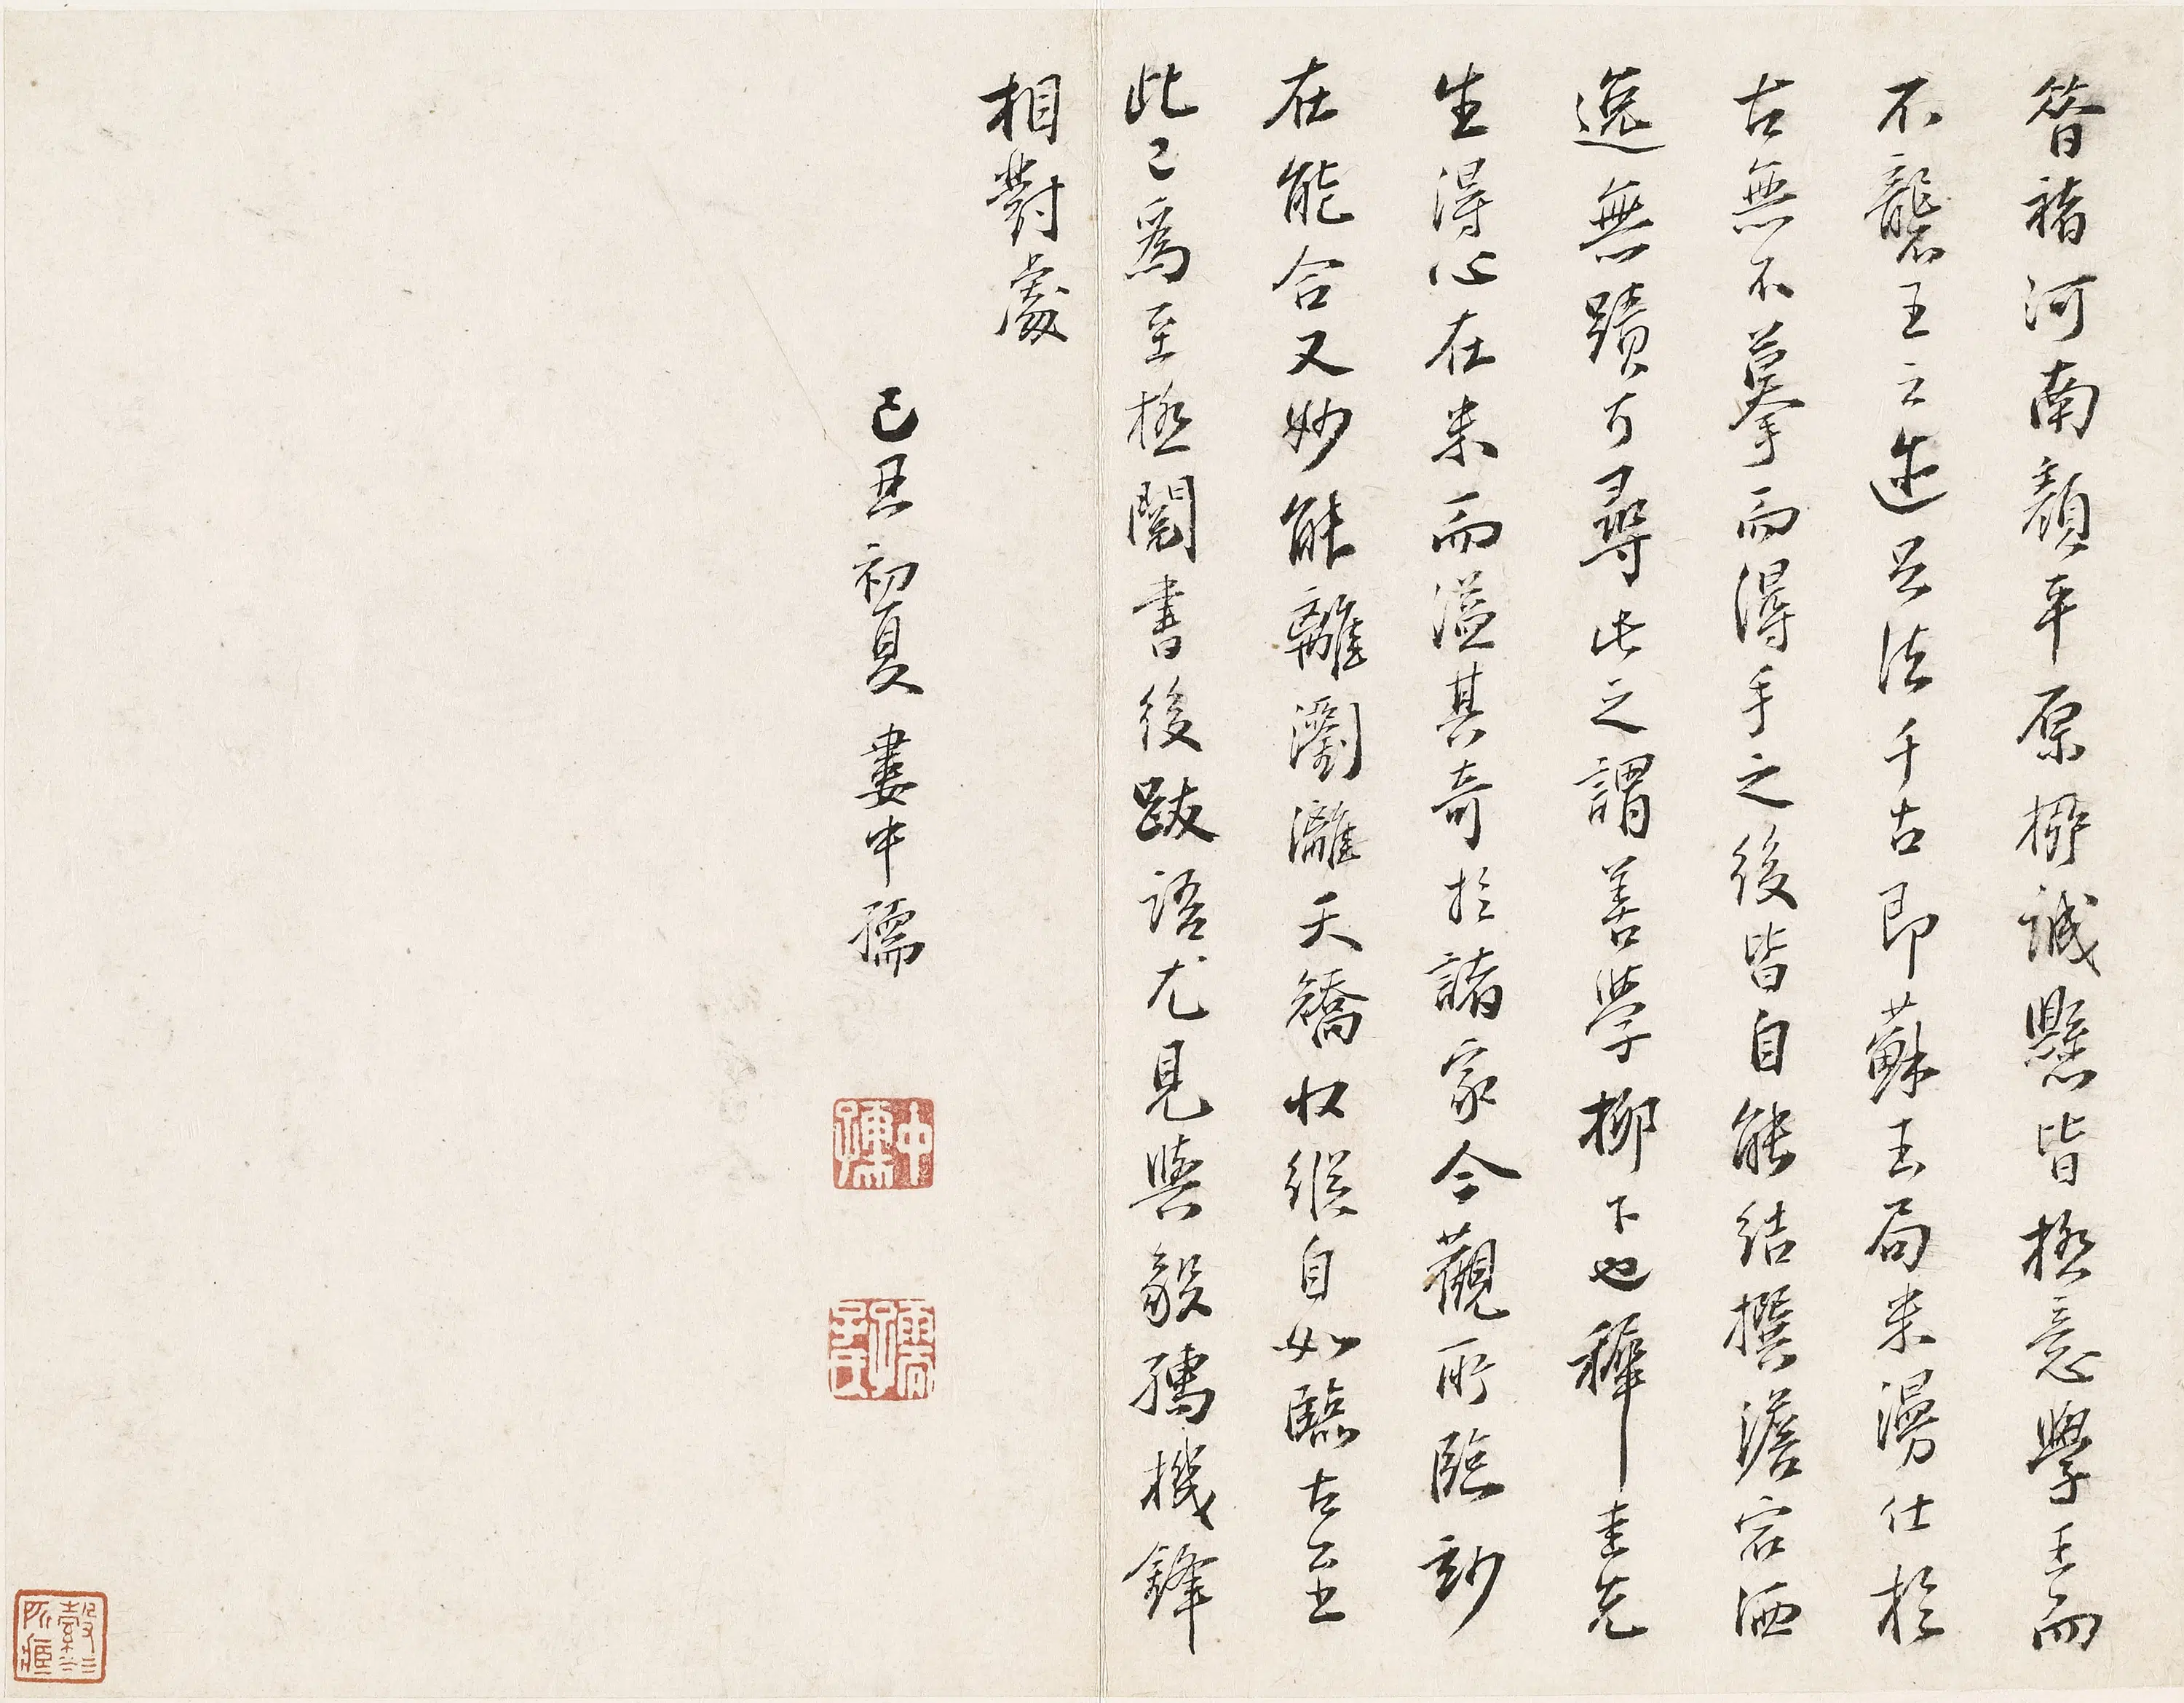 昝褚河南顏平原柳誠懸皆極意學王而
不襲王之迹足法千古即蘇玉局米漫仕於
古無不摹而得手之後皆自能結撰澹宕洒
逸無蹟可尋此之謂善學柳下也穉圭先
生得心在米而溢其奇於諸家今觀所臨玅
在能合又妙能離瀏灕夭矯收縱自如臨古至
此已為至極閱書後跋語尤見與毅孺機鋒
相對處
己丑初夏婁中孺